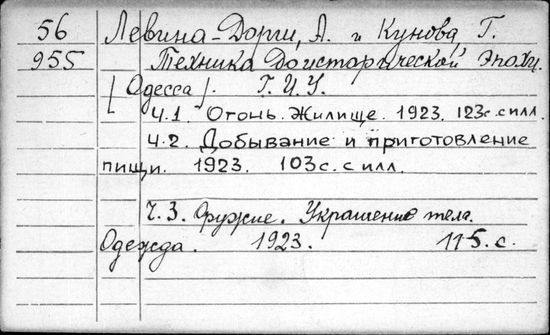 56 Левина-Дорш, А. и Кунов, Г.
955 Техника Доисторической Эпохи.
[Одесса]. Г.И.У.
Ч.1. Огонь. Жилище. 1923. 123с. с илл.
Ч.2. Добывание и приготовление
пищи. 1923. 103с. с илл.
Ч.3. Оружие. Украшение тела.
Одежда. 1923. 115. с.